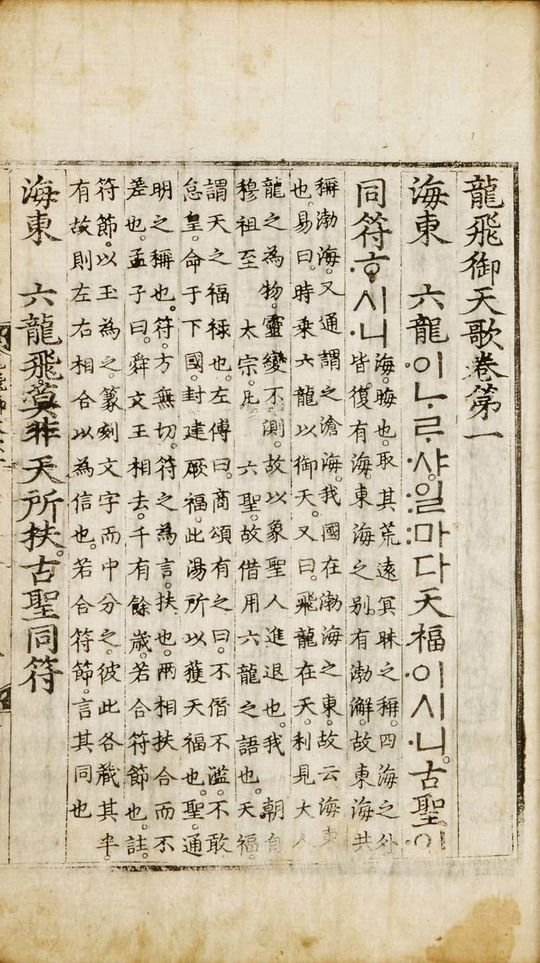 龍飛御天歌卷第一
海東 六龍이ᄂᆞᄅᆞ샤일마다天福이시니。古聖이
同符ᄒᆞ시니
海。晦也。取其荒遠冥昧之稱。四海之外
皆復有海。東海之別有渤澥。故東海共
稱渤海。又通謂之滄海。我國在渤海之東。故云海東
也。易曰。時乘六龍以御天。又曰。飛龍在天。利見大人
龍之為物。靈變不測。故以象聖人進退也。我 朝自
穆祖至 太宗。凡 六聖。故借用六龍之語也。天福。
謂天之福祿也。左傳曰。商頌有之曰。不僭不濫。不敢
怠皇。命于下國。封建厥福。此湯所以獲天福也。聖。通
明之稱也。符。方無切。符之為言。扶也。兩相扶合而不
差也。孟子曰。舜文王相去。千有餘歲。若合符節也。註。
符節。以玉為之。篆刻文字而中分之。彼此各藏其半。
有故則左右相合以為信也。若合符節。言其同也
海東 六龍飛。莫非天所扶。古聖同符